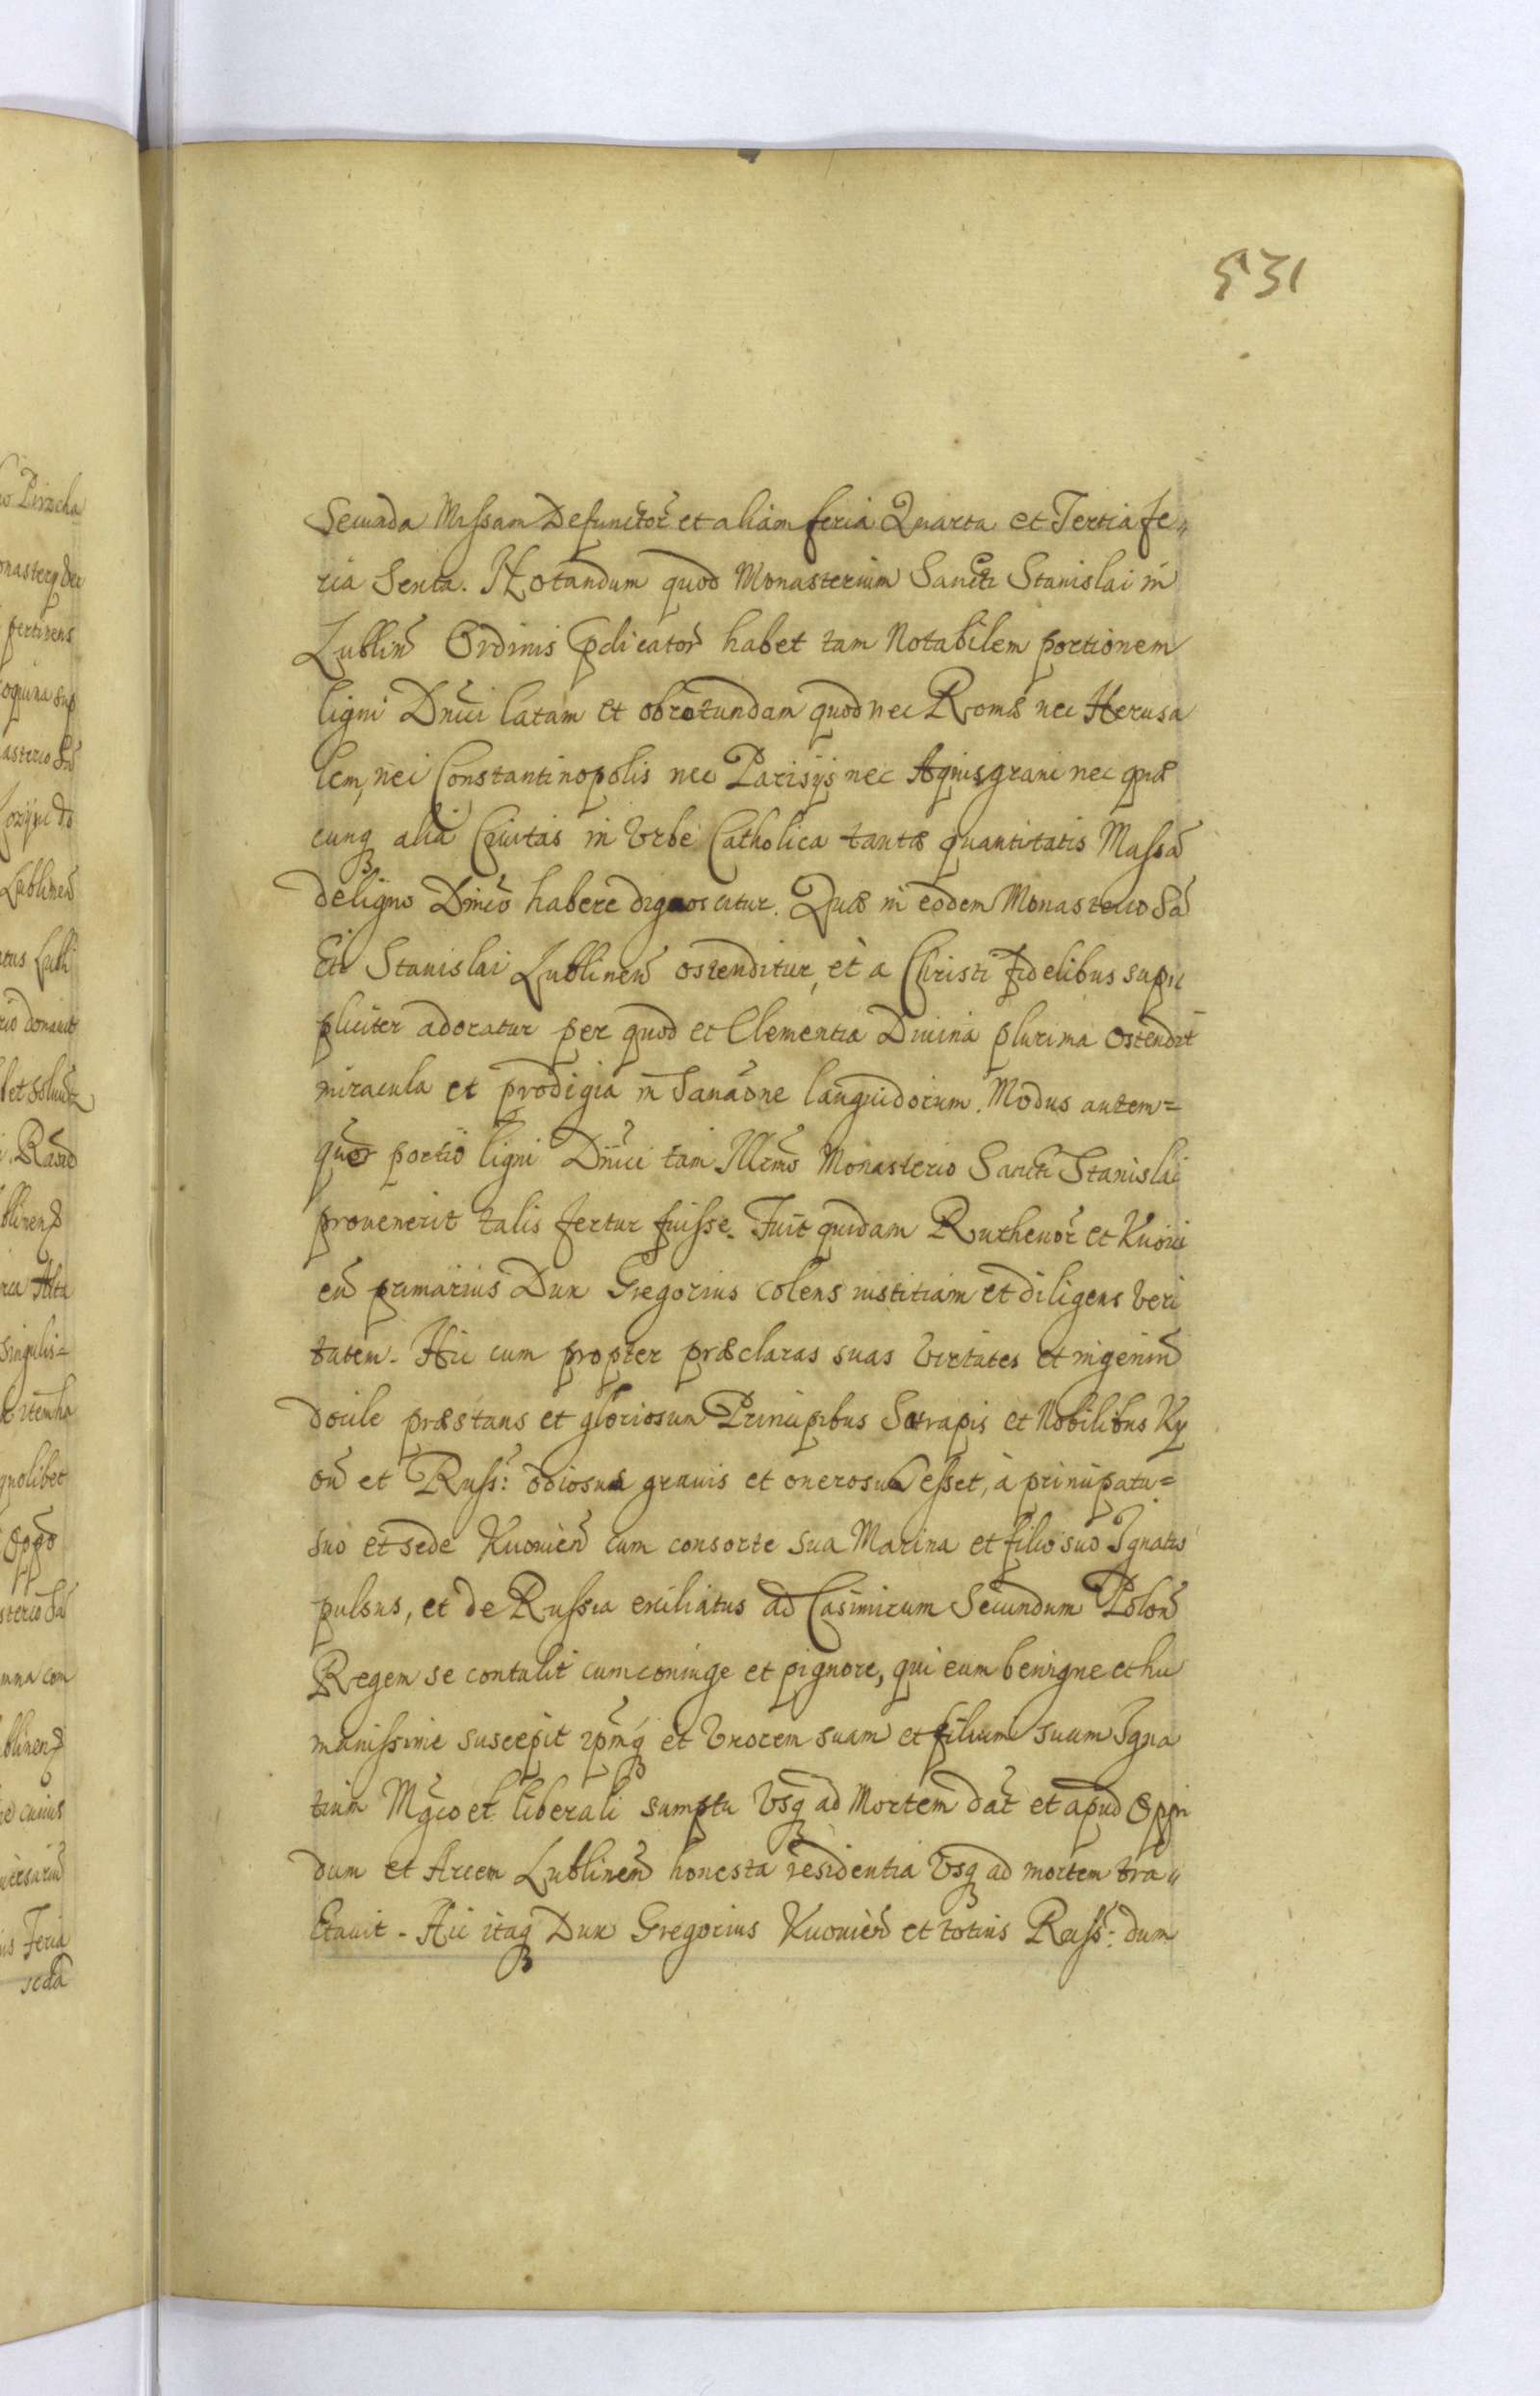 531
Secunda Missam Defunctor̃ et aliam feria Quarta et Tertia fe„
ria Sexta. Notandum quod Monasterium Sancti Stanislai in
Lublin̄ Ordinis p̄dicator̄ habet tam Notabilem portionem
ligni Dnīci latam et obrotundam quod nec Romæ nec Hierusa
lem, nec Constantinopolis nec Parisijs nec Aquisgrani nec quæ
cunq3 alia Civitas in Vrbe Catholica tantæ quantitatis Massā
de ligno Dnīco habere dignoscatur. Quæ in eodem Monasterio Sā
cti Stanislai Lublinen̄ ostenditur, et a Christi fidelibus sup
pliciter adoratur per quod et Clementia Diuina plurima ostendit
miracula et prodigia in Sanaōne languidorum. Modus autem=
quo portio ligni Dnīci tam Illrmō Monasterio Sancti Stanislai
prouenerit talis fertur fuisse. Fuit quidam Ruthenor̃ et Kuoui
en̄ primarius Dux Gregorius colens iustitiam et diligens veri
tatem. Hic cum propter præclaras suas virtutes et ingeniū
docile præstans et gloriosum Principibus Satrapis et Nobilibus Ky
ou̅ et Russ: odiosus grauis et onerosus esset, à principatu=
suo et sede Kuouien̄ cum consorte sua Marina et filio suo Ignatio
pulsus, et de Russia exiliatus ad Casimirum Secundum Polon̄
Regem se contulit cum coniuge et pignore, qui eum benigne et hu
manissime suscepit ipm̄q3 et Vxorem suam et filium suum Igna
tium Mgcō et liberali sumptu Vsq3 ad Mortem dāt et apud Oppi
dum et Arcem Lublinen̄ honesta residentia Vsq3 ad mortem tra„
ctauit. Hic itaq3 Dux Gregorius Kuouien̄ et totius Russ: dum